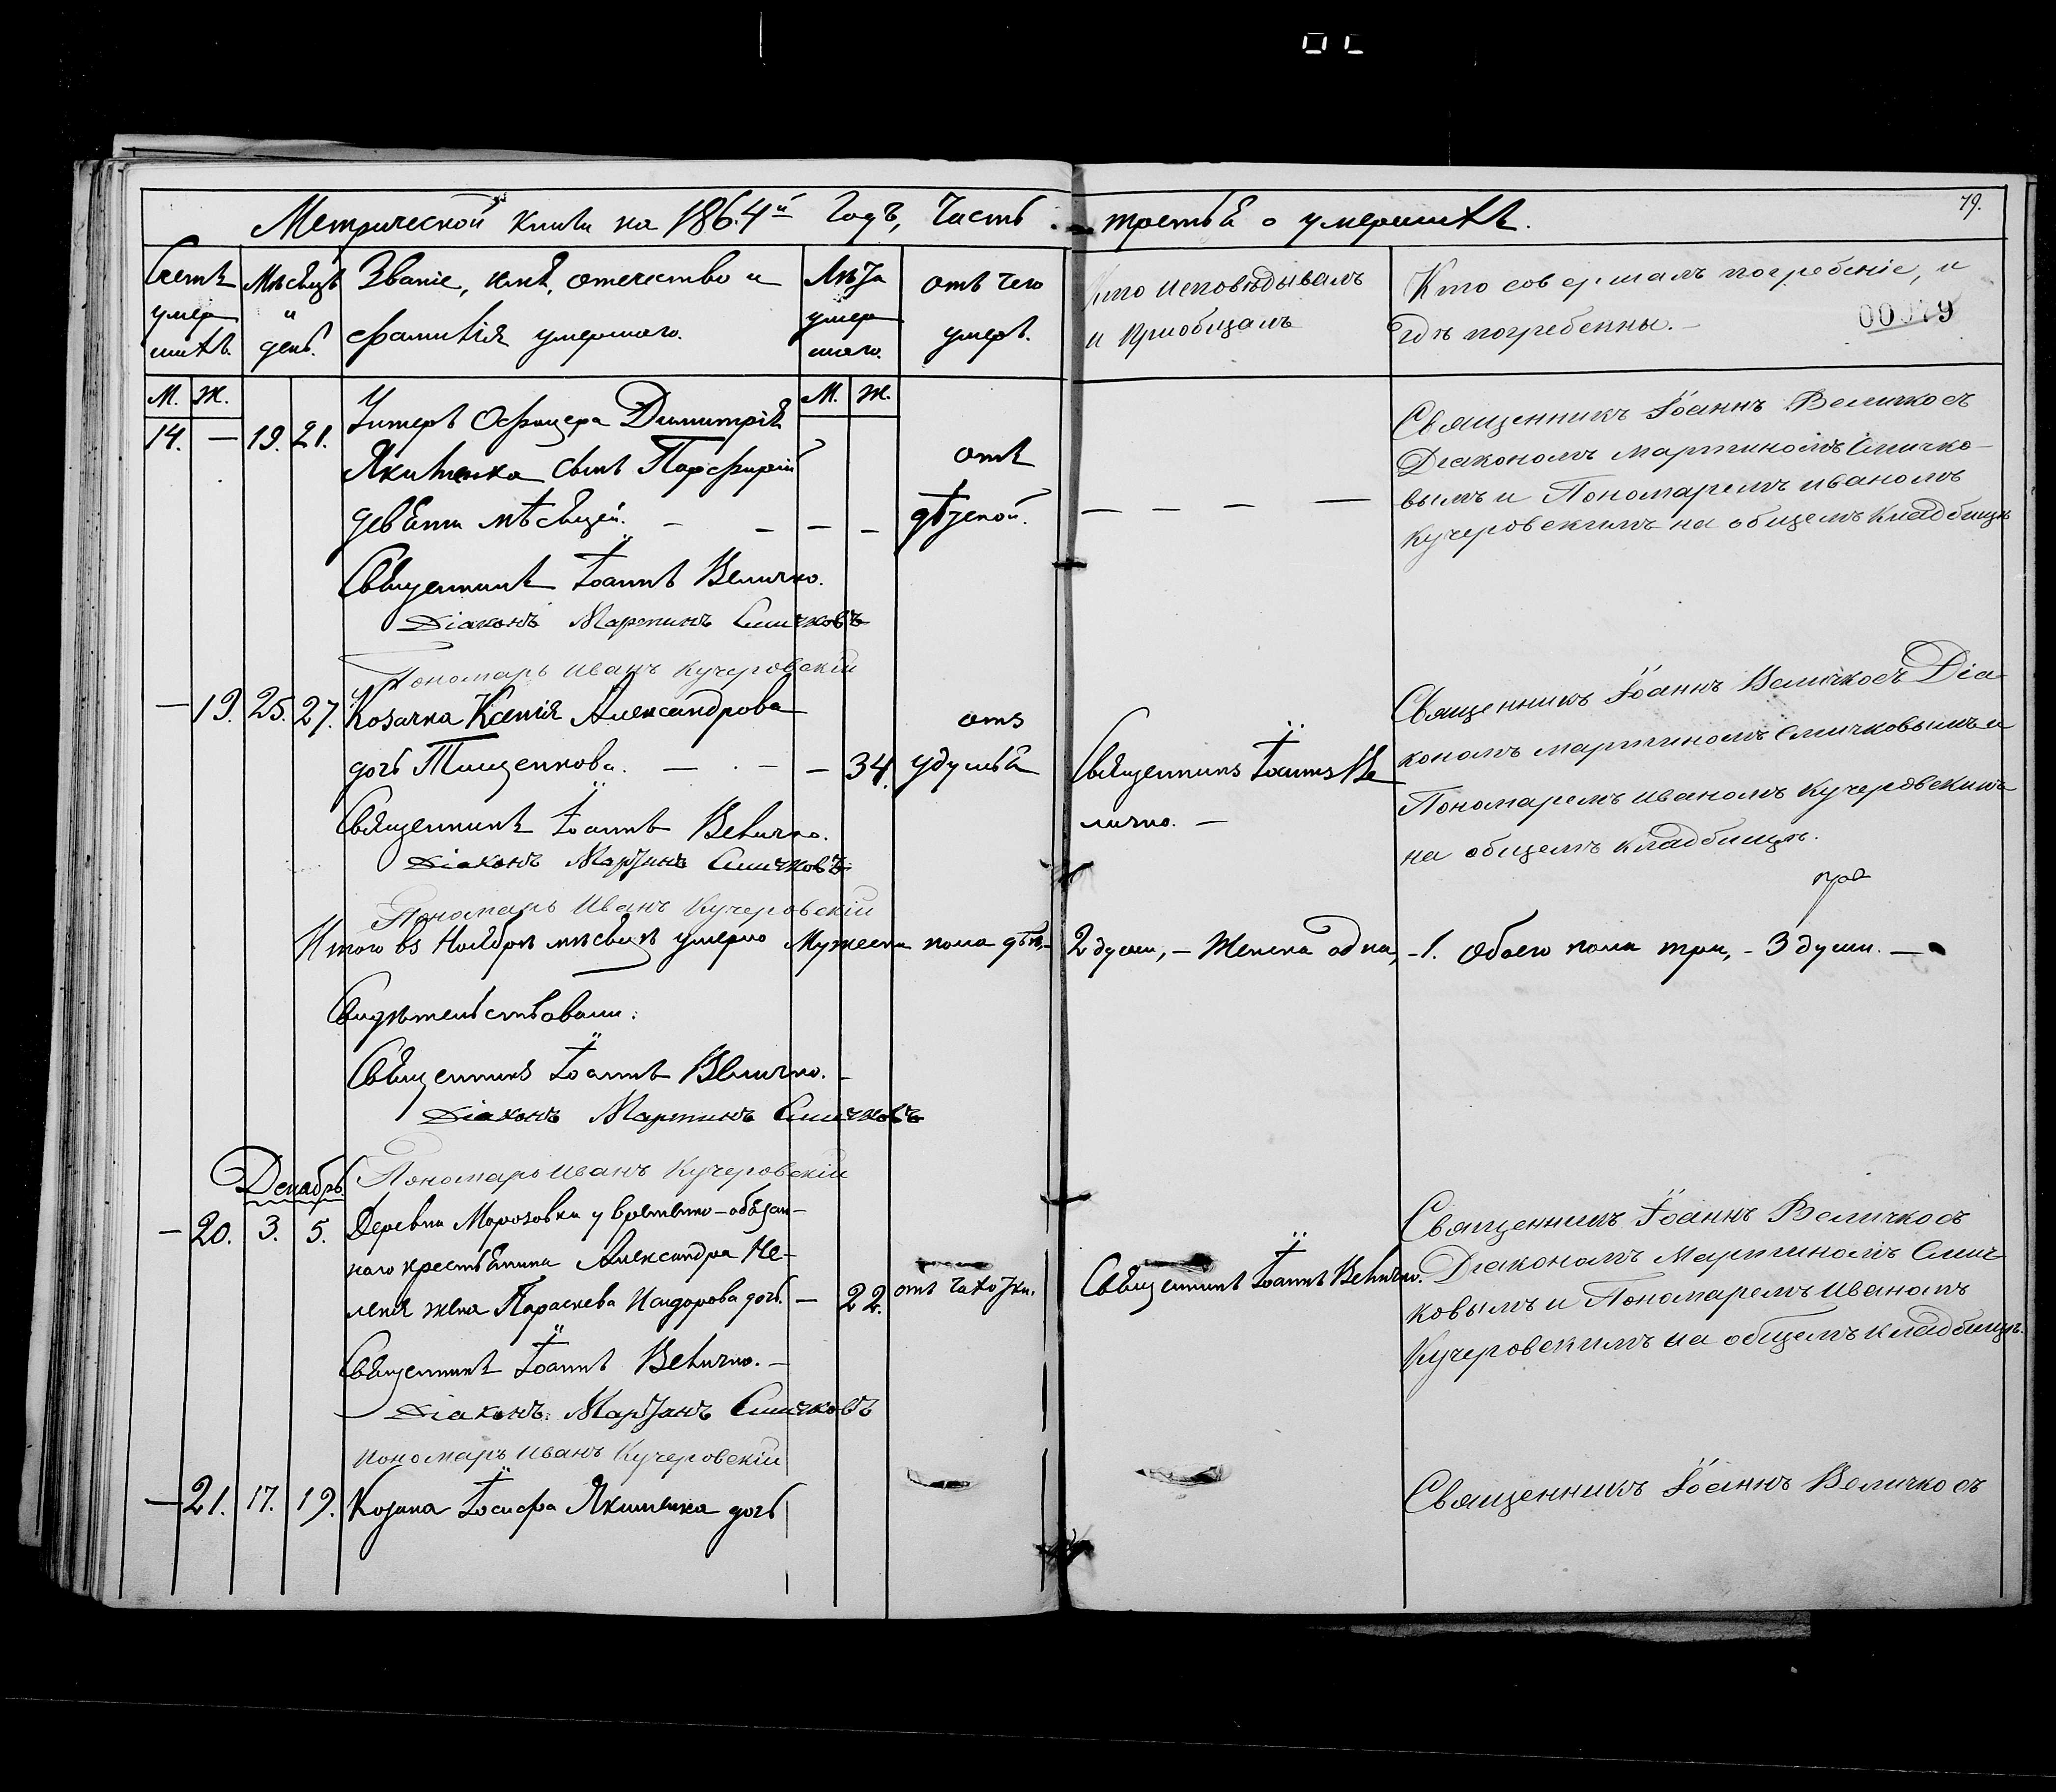 79.
Метрической книги на 1864й годъ, Часть третья о умершихъ.
Счетъ умершихъ.
Мѣсяцъ и день.
Званіе, имя, отечество и фамилія умершаго.
Лѣта умершаго.
Отъ чего умеръ.
Кто исповѣдывалъ и пріобщалъ
Кто совершалъ погребеніе, и гдѣ погребенны. –
00079
М. Ж.
М. Ж.
14. — 19. 21. Унтеръ Офицера Димитрія
Якименка сынъ Порфирій
девяти мѣсяцей. — — — —
отъ
дѣтской.
— — — —
Священникъ Іоаннъ Величко съ
Діакономъ Мартиномъ Смичко-
вымъ и Пономаремъ Иваномъ
Кучеровскимъ на общемъ кладбищѣ
Священникъ Іоаннъ Величко.
Діаконъ Мартинъ Смичковъ
Пономарь Иванъ Кучеровскій
— 19. 25. 27. Козачка Ксенія Александрова
дочь Тищенкова. — — — 34.
отъ
удушья
Священникъ Іоаннъ Ве
личко. —
Священникъ Іоаннъ Величко съ Діа
кономъ Мартиномъ Смичковымъ и
Пономаремъ Иваномъ Кучеровскимъ
на общемъ кладбищѣ.
Священникъ Іоаннъ Величко.
Діаконъ Мартинъ Смичковъ
Пономарь Иванъ Кучеровскій
Итого въ Ноябрѣ мѣсяцѣ умерло Мужеска пола двѣ,– 2 души, – Женска одна, – 1. Обоего пола три, – 3 души. —
Свидѣтельствовали:
Священникъ Іоаннъ Величко. –
Діаконъ Мартинъ Смичковъ
Пономарь Иванъ Кучеровскій
Декабрь
— 20. 3. 5. Деревни Морозовки у временно-обязан-
наго крестьянина Александра Не-
леня жена Параскева Исидорова дочь. — 22.
отъ чахотки.
Священникъ Іоаннъ Величко.
Священникъ Іоаннъ Величко съ
Діакономъ Мартиномъ Смич
ковымъ и Пономаремъ Иваномъ
Кучеровскимъ на общемъ кладбищѣ.
Священникъ Іоаннъ Величко. –
Діаконъ Мартинъ Смичковъ
Пономарь Иванъ Кучеровскій
— 21. 17. 19. Козака Іосифа Якименка дочь
Священникъ Іоаннъ Величко съ